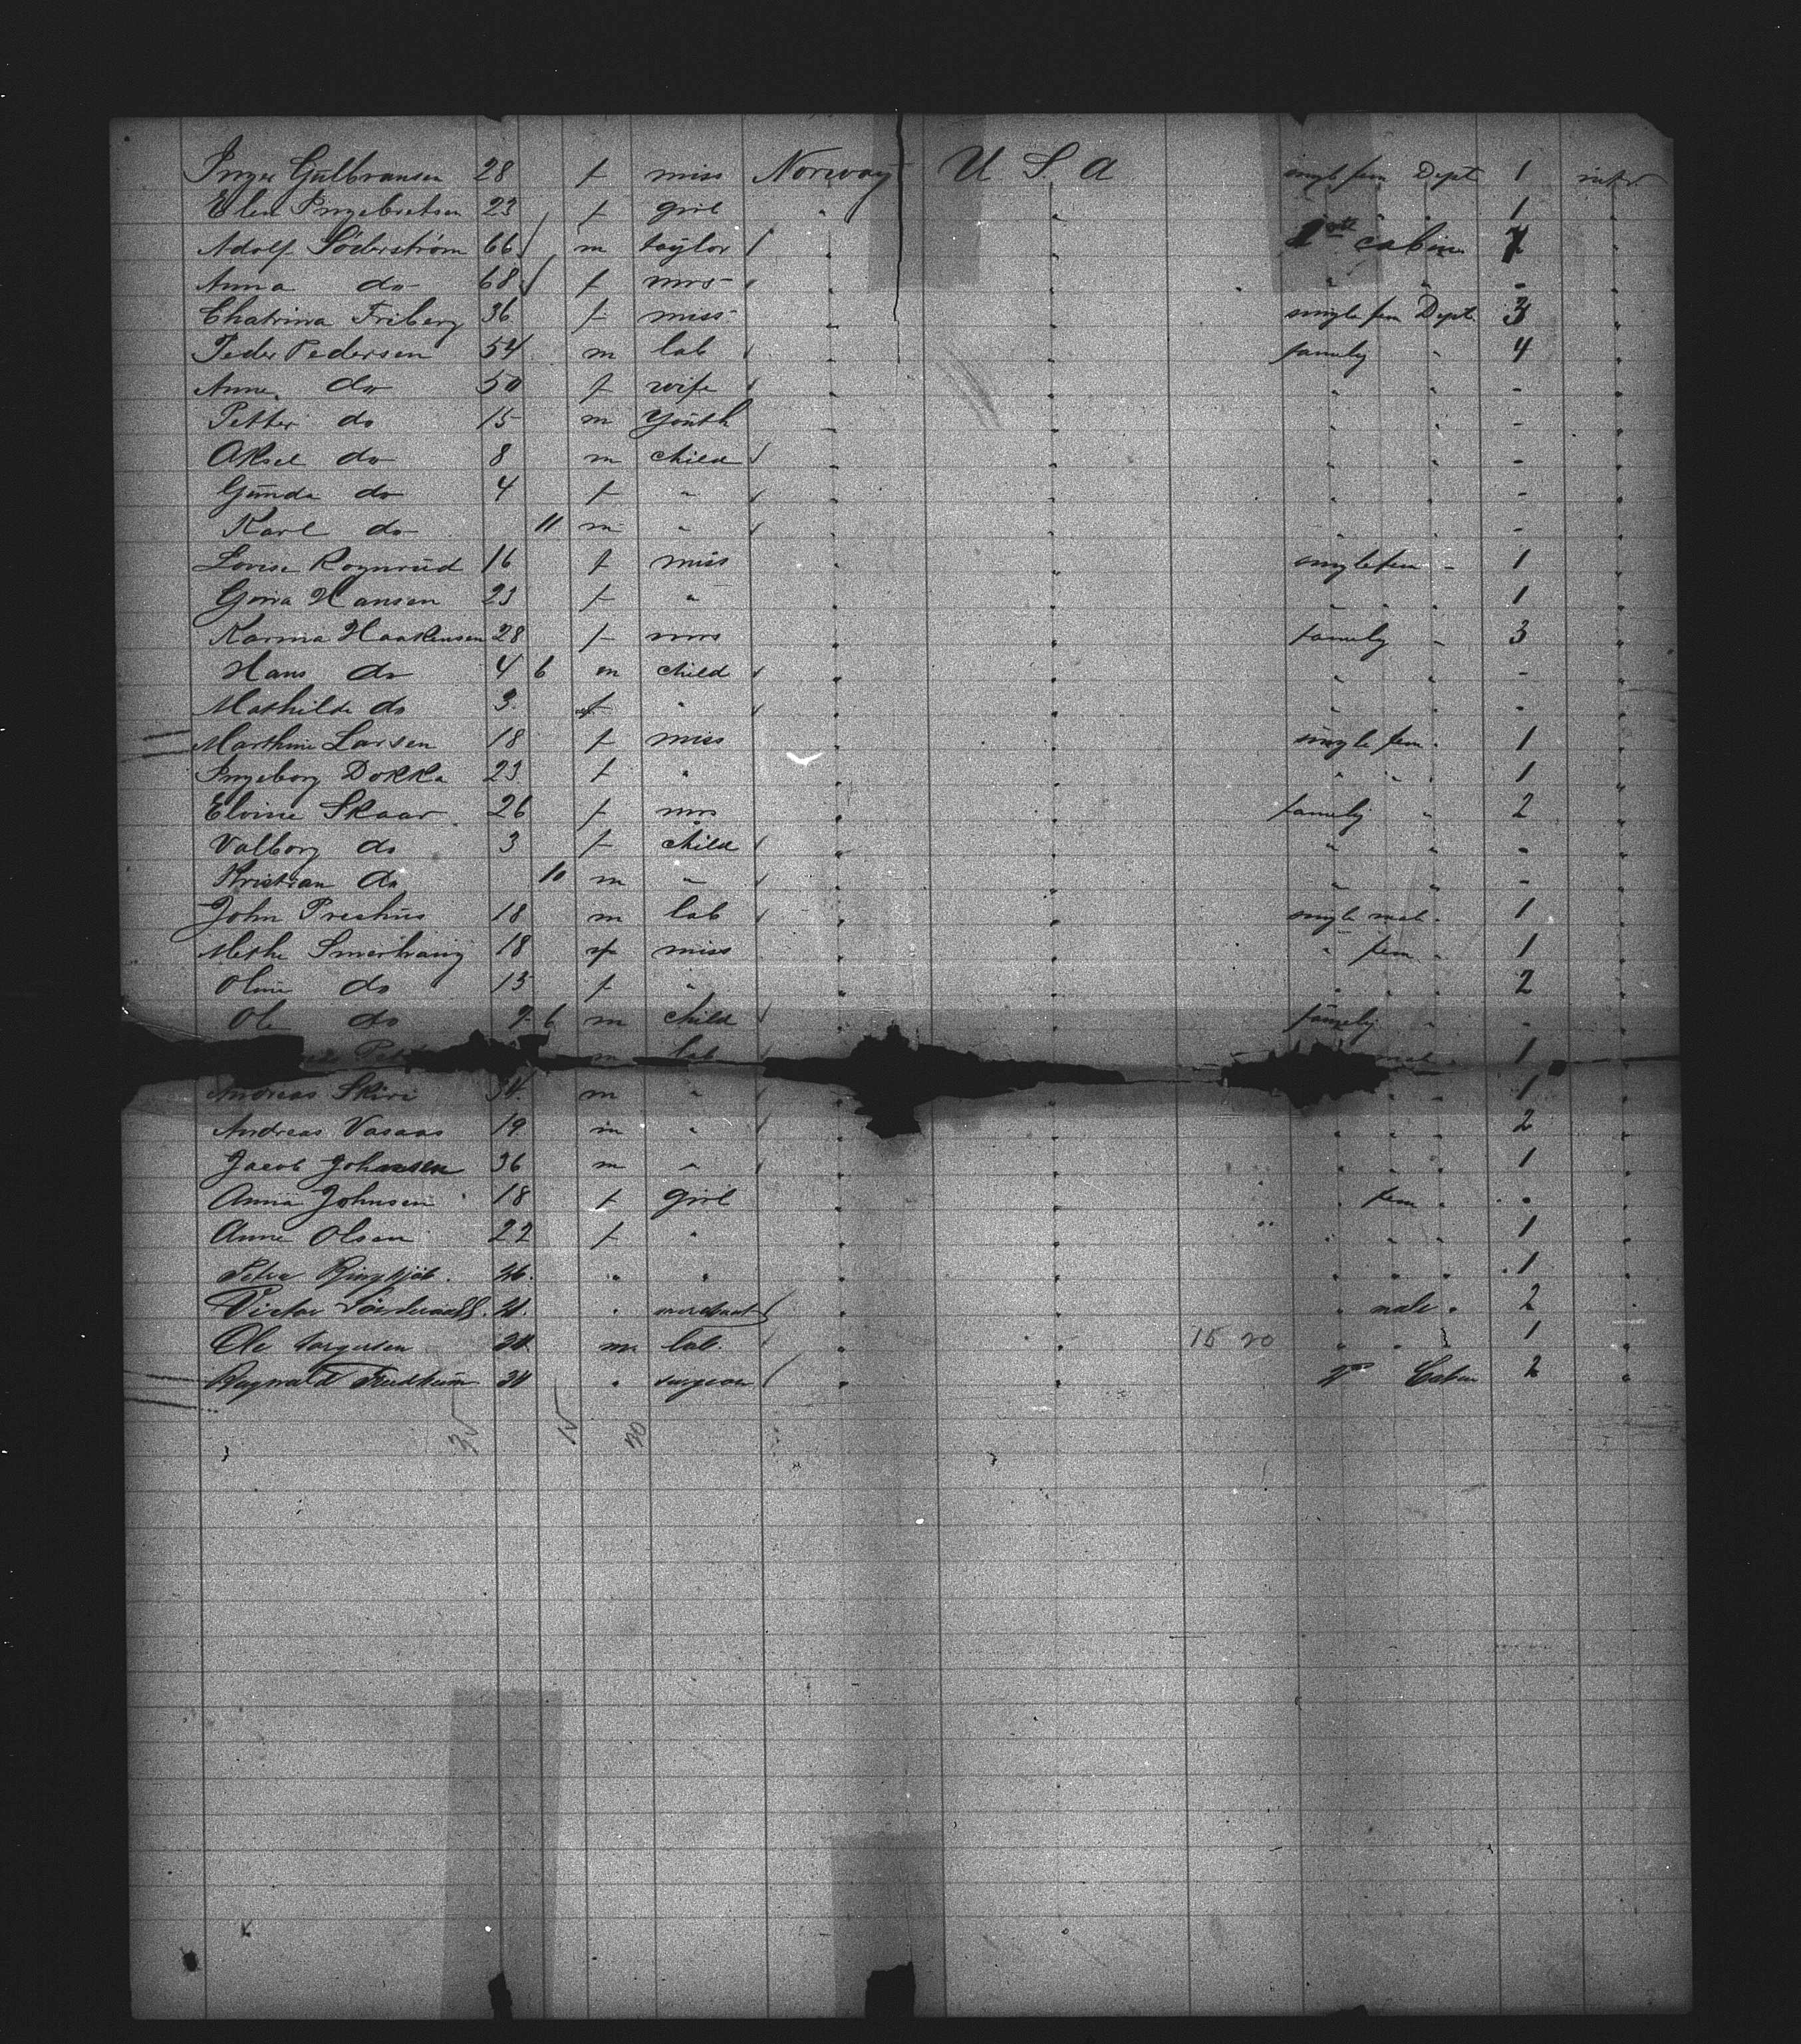 Inger Gulbransen 28 f miss Norway U S A single fem Dept 1
Elen Ingebretsen 23 f girl " " " " " 1 "
Adolf Söderström 66 m taylor " " cabin "
Anna do 68 f mrs " " " " - "
Chatrina Friberg 36 f miss " " single fem Dept. 3 "
Peder Pedersen 54 m lab " " family " 4 "
Anne do 50 f wife " " " " - "
Petter do 15 m Youth " " " " - "
Aksel do 8 m child " " " " - "
Gunda do 4 f " " " " " - "
Karl do 11 m " " " " " - "
Lovise Rognrud 16 f miss " " single fem " 1 "
Hansen 23 f " " " " " " 1 "
Karina Haakensen 28 f mrs " " family " 3 "
Hans do 4 6 m child " " " " - "
Mathilde do 3 f " " " " " - "
Marthine Larsen 18 f miss " " single fem " 1 "
Ingeborg Dokka 23 f " " " " " " 1 "
Elvine Skaar 26 f mrs " " family " 2 "
Valborg do 3 f child " " " " - "
Kristian do 10 m " " " " " - "
John 18 m lab " " single mal " 1 "
Methe 18 f miss " " " fem " 1 "
Oline do 15 f " " " " " " 2 "
Ole do 9 6 m child " " family " - "
m lab 1 "
Andreas Skiri 34 m " " " " " " 1 "
Andreas Vasaas 19 m " " " " " " 2 "
Jacob Johansen 36 m " " " " " " 1 "
Anna Johnsen 18 f girl " " " fem " "
Anne Olsen 22 f " " " " " " 1 "
Petra " " " " " " " 1 "
Victor " merchant " " " male " 2 "
Ole m lab. " " 15 20 " " " 1 "
" surgeon " " Cabin 2 "
35 15 20